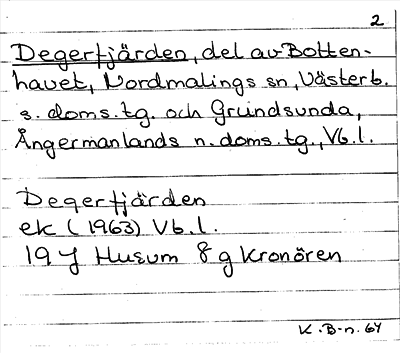 2
Degerfjärden, del av Botten-
havet, Nordmalings sn, Västerb.
s. doms.tg. och Grundsunda,
Ångermanlands n. doms.tg., Vb.l.
Degerfjärden
ek (1963) Vb.l.
19 J Husum 8 g Kronören
K.B-n. 64